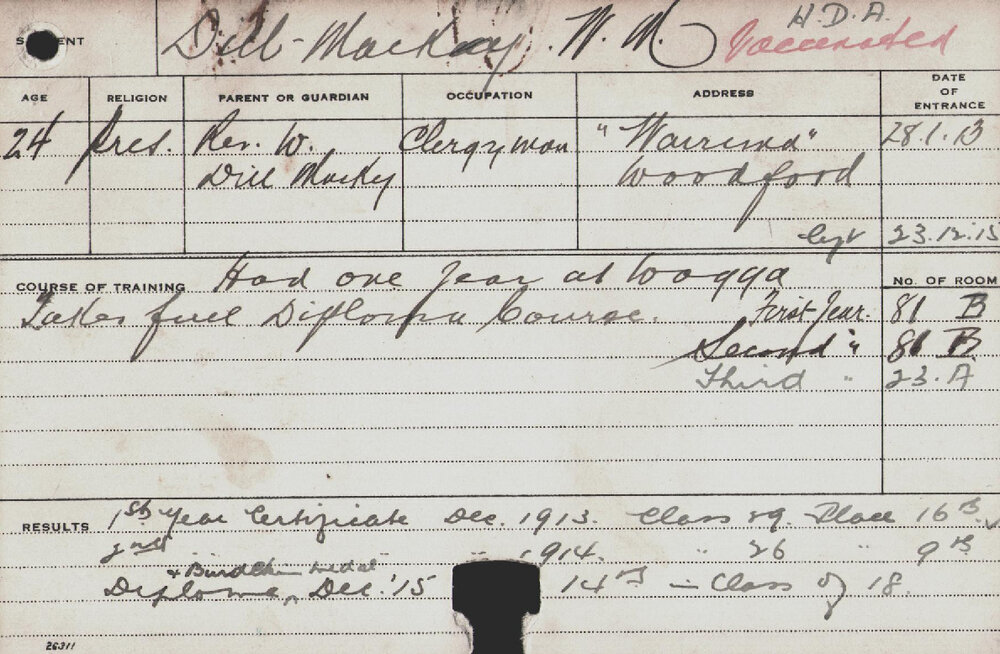 STUDENT Dill-Mackay. W. M. H.D.A.
Vaccinated
AGE RELIGION PARENT OR GUARDIAN OCCUPATION ADDRESS DATE OF ENTRANCE
24 Pres. Rev. W. Clergyman 28.1.13
Dill Macky Woodford
Left 23.12.15
COURSE OF TRAINING Had one year at Wagga No. OF ROOM
Takes full Diploma Course. First Year. 81 B
Second " 81 B
Third " 23. A
RESULTS 1st Year Certificate Dec. 1913. Class 29. Place 16th
2nd " " 1914. " 26 " 9th
& Burdekin Medal
Diploma Dec. '15 14th in Class of 18.
26311